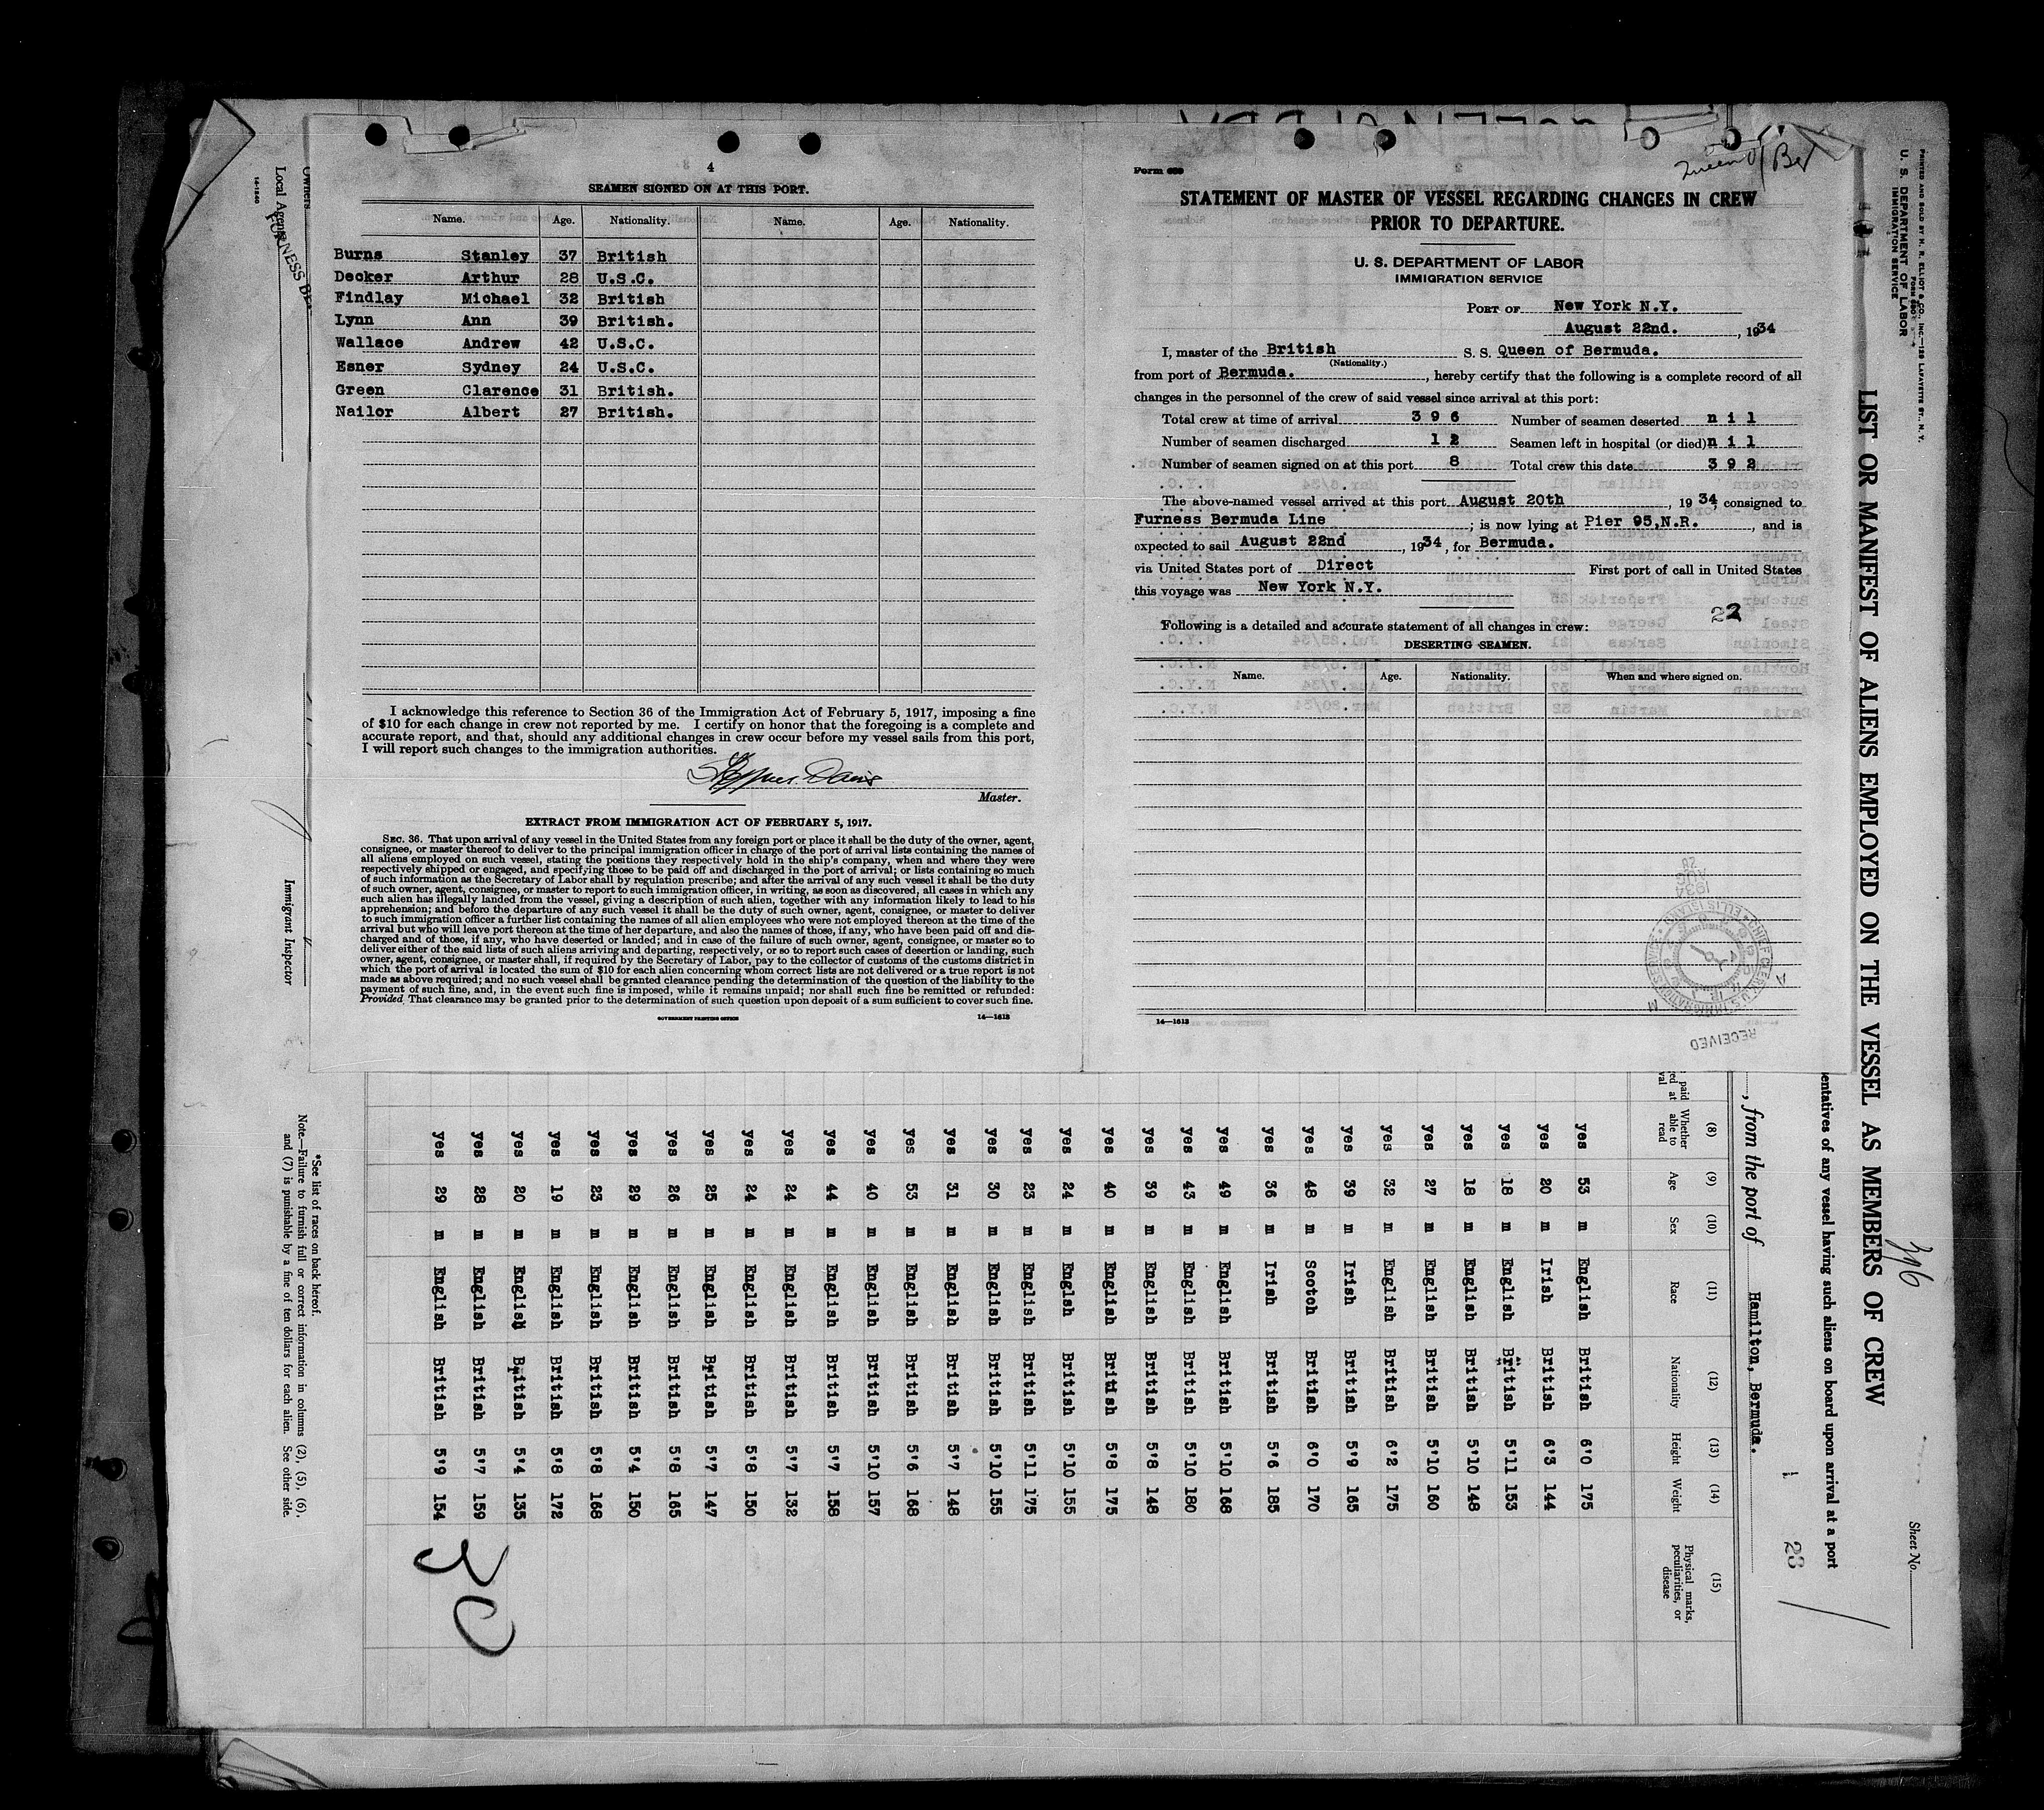 4
SEAMEN SIGNED ON AT THIS PORT.
Name. Age. Nationality. Name. Age. Nationality.
Burns Stanley 37 British
Decker Arthur 28 U.S.C.
Findlay Michael 32 British
Lynn Ann 39 British.
Wallace Andrew 42 U.S.C.
Esner Sydney 24 U.S.C.
Green Clarence 31 British.
Nailor Albert 27 British.
I acknowledge this reference to Section 36 of the Immigration Act of February 5, 1917, imposing a fine
of $10 for each change in crew not reported by me. I certify on honor that the foregoing is a complete and
accurate report, and that, should any additional changes in crew occur before my vessel sails from this port,
I will report such changes to the immigration authorities.
Davis
Master.
EXTRACT FROM IMMIGRATION ACT OF FEBRUARY 5, 1917.
SEC. 36. That upon arrival of any vessel in the United States from any foreign port or place it shall be the duty of the owner, agent,
consignee, or master thereof to deliver to the principal immigration officer in charge of the port of arrival lists containing the names of
all aliens employed on such vessel, stating the positions they respectively hold in the ship's company, when and where they were
respectively shipped or engaged, and specifying those to be paid off and discharged in the port of arrival; or lists containing so much
of such information as the Secretary of Labor shall by regulation prescribe; and after the arrival of any such vessel it shall be the duty
of such owner, agent, consignee, or master to report to such immigration officer, in writing, as soon as discovered, all cases in which any
such alien has illegally landed from the vessel, giving a description of such alien, together with any information likely to lead to his
apprehension; and before the departure of any such vessel it shall be the duty of such owner, agent, consignee, or master to deliver
to such immigration officer a further list containing the names of all alien employees who were not employed thereon at the time of the
arrival but who will leave port thereon at the time of her departure, and also the names of those, if any, who have been paid off and dis-
charged and of those, if any, who have deserted or landed; and in case of the failure of such owner, agent, consignee, or master so to
deliver either of the said lists of such aliens arriving and departing, respectively, or so to report such cases of desertion or landing, such
owner, agent, consignee, or master shall, if required by the Secretary of Labor, pay to the collector of customs of the customs district in
which the port of arrival is located the sum of $10 for each alien concerning whom correct lists are not delivered or a true report is not
made as above required; and no such vessel shall be granted clearance pending the determination of the question of the liability to the
payment of such fine, and, in the event such fine is imposed, while it remains unpaid; nor shall such fine be remitted or refunded:
Provided, That clearance may be granted prior to the determination of such question upon deposit of a sum sufficient to cover such fine.
GOVERNMENT PRINTING OFFICE 14—1613
Form 689
Queen of Ber
STATEMENT OF MASTER OF VESSEL REGARDING CHANGES IN CREW
PRIOR TO DEPARTURE.
U. S. DEPARTMENT OF LABOR
IMMIGRATION SERVICE
PORT OF New York N.Y.
August 22nd. , 1934
I, master of the British S. S. Queen of Bermuda.
(Nationality.)
from port of Bermuda. , hereby certify that the following is a complete record of all
changes in the personnel of the crew of said vessel since arrival at this port:
Total crew at time of arrival 396 Number of seamen deserted nil
Number of seamen discharged 12 Seamen left in hospital (or died) nil
Number of seamen signed on at this port 8 Total crew this date 392
The above-named vessel arrived at this port August 20th , 1934, consigned to
Furness Bermuda Line ; is now lying at Pier 95,N.R. , and is
expected to sail August 22nd , 1934, for Bermuda.
via United States port of Direct First port of call in United States
this voyage was New York N.Y.
22
Following is a detailed and accurate statement of all changes in crew:
DESERTING SEAMEN.
Name. Age. Nationality. When and where signed on.
14—1613
RECEIVED
PRINTED AND SOLD BY H. R. ELLIOT & CO., INC.—125 LAFAYETTE ST., N. Y.
U. S. DEPARTMENT OF LABOR
IMMIGRATION SERVICE
Sheet No.
396
LIST OR MANIFEST OF ALIENS EMPLOYED ON THE VESSEL AS MEMBERS OF CREW
entatives of any vessel having such aliens on board upon arrival at a port
1 23
, from the port of Hamilton, Bermuda.
(8) (9) (10) (11) (12) (13) (14) (15)
Whether able to read Age Sex Race Nationality Height Weight Physical marks, peculiarities, or disease
yes 53 m English British 6'0 175
yes 20 m Irish British 6'3 144
yes 18 m English British 5'11 153
yes 18 m English British 5'10 148
yes 27 m English British 5'10 160
yes 32 m English British 6'2 175
yes 39 m Irish British 5'9 165
yes 48 m Scotch British 6'0 170
yes 36 m Irish British 5'6 185
yes 49 m English British 5'10 168
yes 43 m English British 5'10 180
yes 39 m English British 5'8 148
yes 40 m English British 5'8 175
yes 24 m Englsh British 5'10 155
yes 23 m English British 5'11 175
yes 30 m English British 5'10 155
yes 31 m English British 5'7 148
yes 53 m English British 5'6 168
yes 40 m English British 5'10 157
yes 44 m English British 5'7 158
yes 24 m English British 5'7 132
yes 24 m English British 5'8 150
yes 25 m English British 5'7 147
yes 26 m English British 5'8 165
yes 29 m English British 5'4 150
yes 23 m English British 5'8 168
yes 19 m English British 5'8 172
yes 20 m English British 5'4 135
yes 28 m English British 5'7 159
yes 29 m English British 5'9 154
30
*See list of races on back hereof.
Note.—Failure to furnish full or correct information in columns (2), (5), (6),
and (7) is punishable by a fine of ten dollars for each alien. See other side.
Owners
Local Agents
FURNESS BE
14-1240
Immigrant Inspector